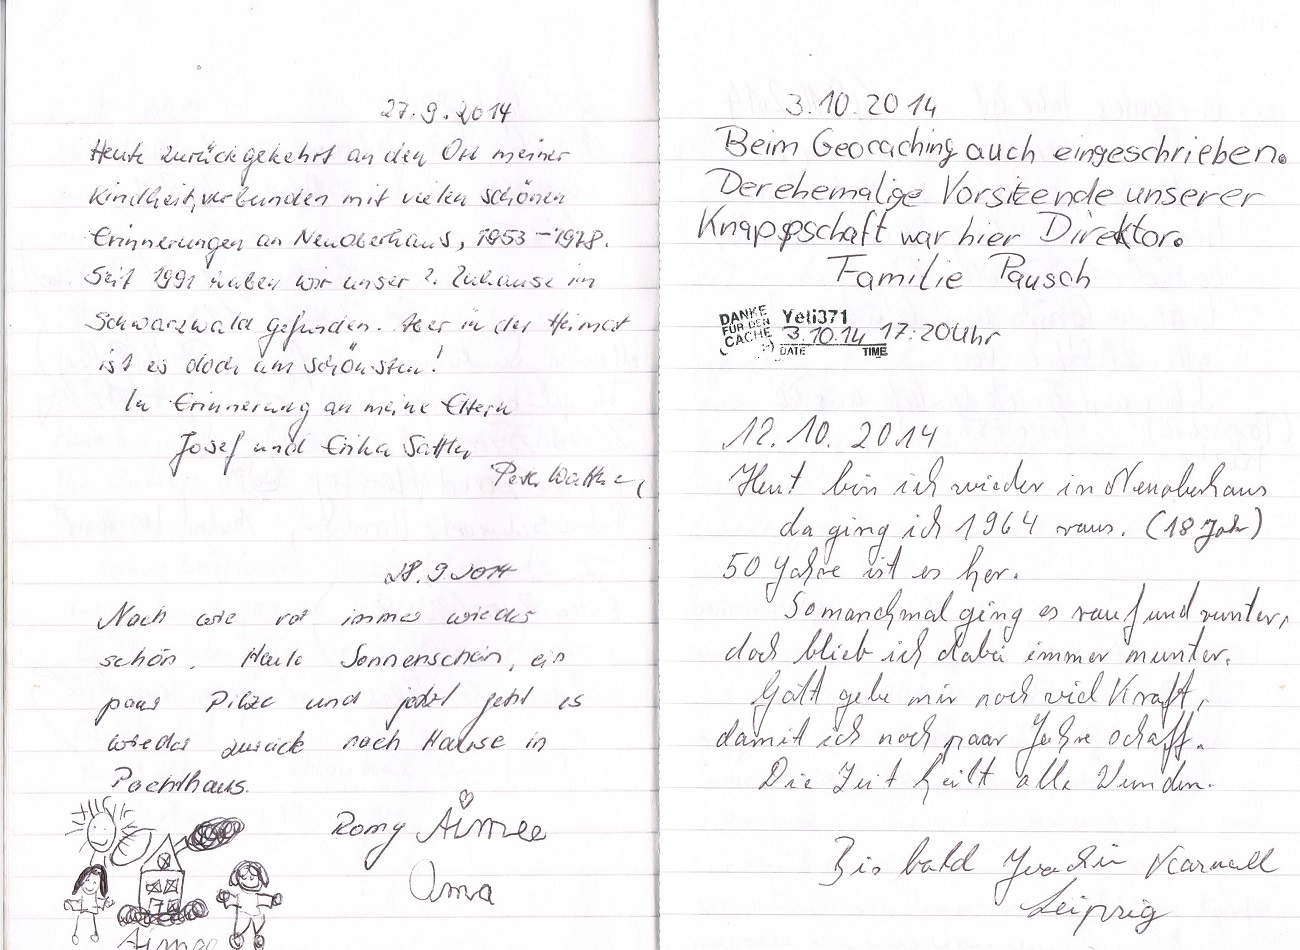 27.9.2014
Heute zurückgekehrt an den Ort meiner
Kindheit, verbunden mit vielen schönen
Erinnerungen an Neuoberhaus, 1953 - 1978.
Seit 1991 haben wir unser 2. Zuhause im
Schwarzwald gefunden. Aber in der Heimat
ist es doch am schönsten!
In Erinnerung an meine Eltern
Josef und Erika Sattler
Peter
28.9.2014
Nach wie vor immer wieder
schön. Heute Sonnenschein, ein
paar Pilze und jetzt geht es
wieder zurück nach Hause in
Pachthaus.
Romy Aimee
Oma
Aimee
3.10.2014
Beim Geocaching auch eingeschrieben.
Der ehemalige Vorsitzende unserer
Knappschaft war hier Direktor.
Familie Pausch
DANKE
FÜR DEN
CACHE
:-)
Yeti371
3.10.14 17:20 Uhr
DATE TIME
12.10.2014
Heut bin ich wieder in Neuoberhaus
da ging ich 1964 raus. (18 Jahr)
50 Jahre ist es her.
So manchmal ging es rauf und runter,
doch blieb ich dabei immer munter.
Gott gebe mir noch viel Kraft,
damit ich noch paar Jahre schaff.
Die Zeit heilt alle Wunden.
Bis bald Joachim
Leipzig